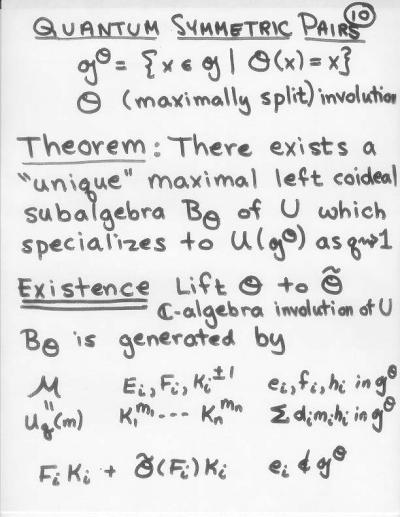 QUANTUM SYMMETRIC PAIRS 10
g^θ = {x ∈ g | θ(x) = x}
θ (maximally split) involution
Theorem: There exists a
"unique" maximal left coideal
subalgebra B_θ of U which
specializes to U(g^θ) as q→1
Existence Lift θ to θ̃
ℂ-algebra involution of U
B_θ is generated by
M E_i, F_i, K_i^{±1} e_i, f_i, h_i in g^θ
"
U_q(m) K_1^{m_1} ... K_n^{m_n} Σ d_i m_i h_i in g^θ
F_i K_i + θ̃(F_i) K_i e_i ∉ g^θ